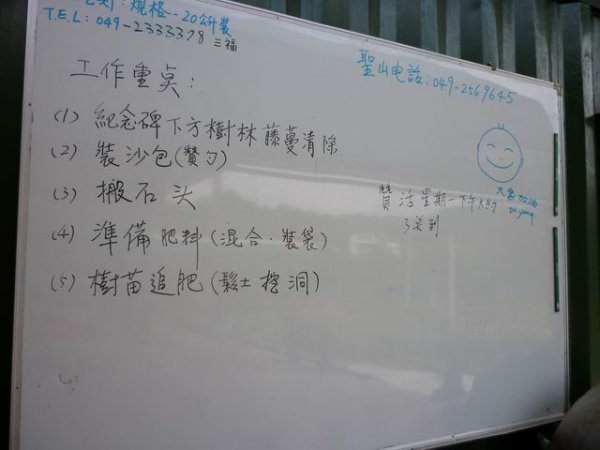 規格--20公斤裝
T.E.L:049-2333378 三福
聖山电話:049-2569645
工作重点:
(1) 紀念碑下方樹林藤蔓清除
(2) 裝沙包(贊勹)
(3) 搬石头
(4) 準備肥料(混合.裝袋)
(5) 樹苗追肥(鬆土挖洞)
大家加油
贊 活星期一下午大約
3点到